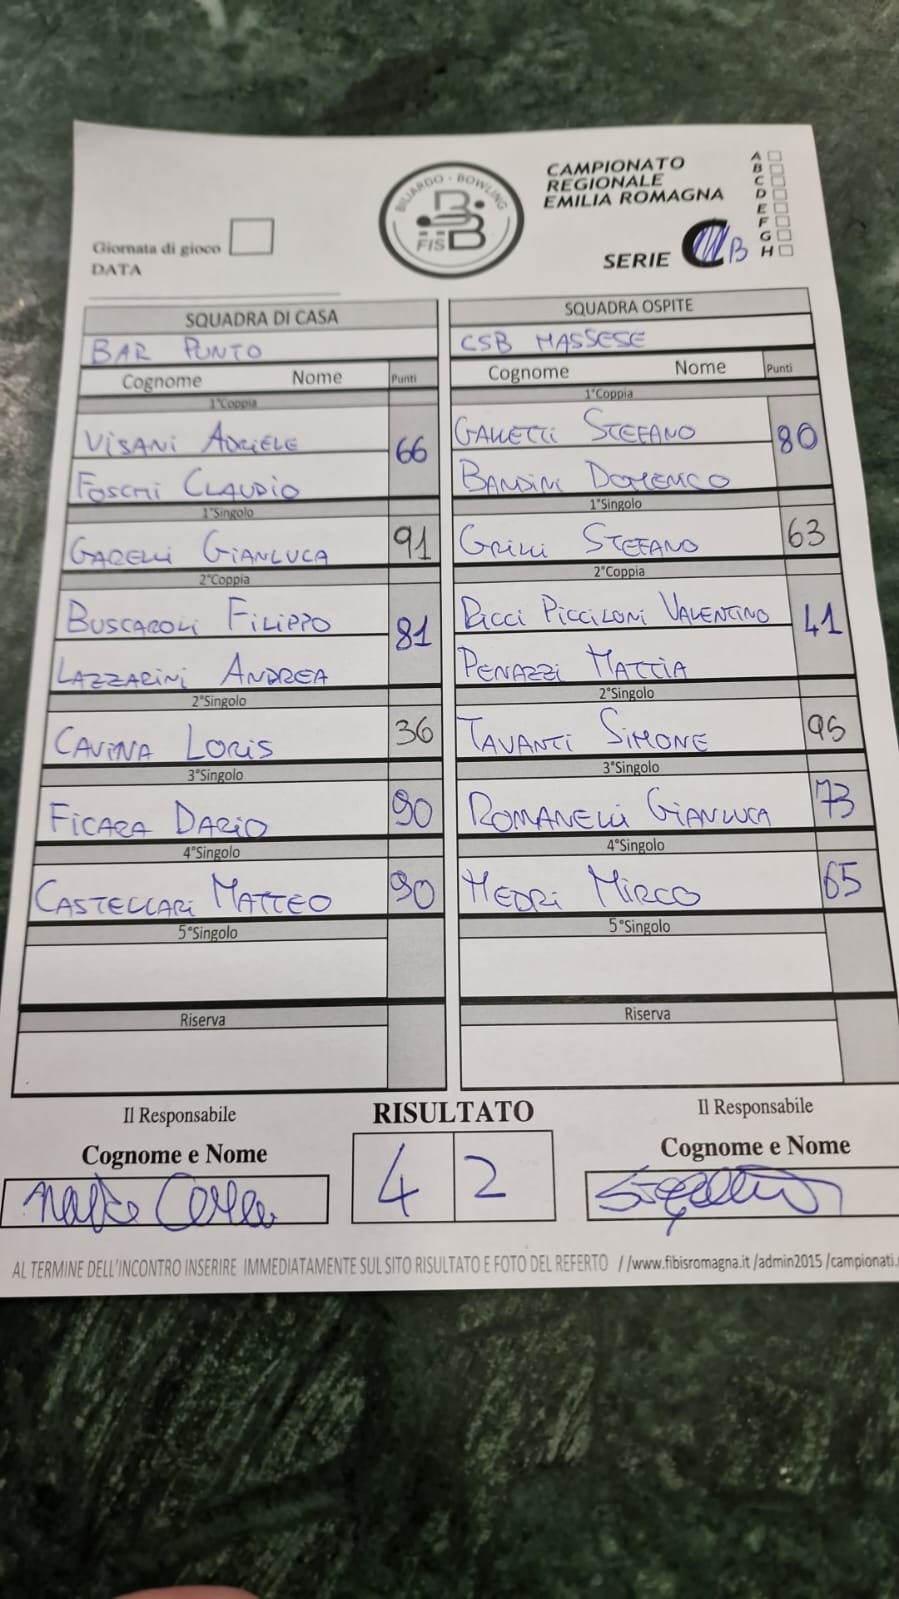 BILIARDO - BOWLING
FISBB
CAMPIONATO
REGIONALE
EMILIA ROMAGNA
A
B
C
D
E
F
G
H
Giornata di gioco
DATA
SERIE B
SQUADRA DI CASA
BAR PUNTO
Cognome Nome Punti
1°Coppia
VISANI ADRIELE
66
FOSCHI CLAUDIO
1°Singolo
GARELLI GIANLUCA 91
2°Coppia
BUSCAROLI FILIPPO
81
LAZZARINI ANDREA
2°Singolo
CAVINA LORIS 36
3°Singolo
FICARA DARIO 90
4°Singolo
CASTELLARI MATTEO 90
5°Singolo
Riserva
SQUADRA OSPITE
CSB MASSESE
Cognome Nome Punti
1°Coppia
GALLETTI STEFANO
80
BANDINI DOMENICO
1°Singolo
GRILLI STEFANO 63
2°Coppia
RICCI PICCILONI VALENTINO
41
PENAZZI MATTIA
2°Singolo
TAVANTI SIMONE 95
3°Singolo
ROMANELLI GIANLUCA 73
4°Singolo
MEDRI MIRCO 65
5°Singolo
Riserva
Il Responsabile
Cognome e Nome
RISULTATO
4 2
Il Responsabile
Cognome e Nome
AL TERMINE DELL'INCONTRO INSERIRE IMMEDIATAMENTE SUL SITO RISULTATO E FOTO DEL REFERTO //www.fibisromagna.it /admin2015 /campionati.